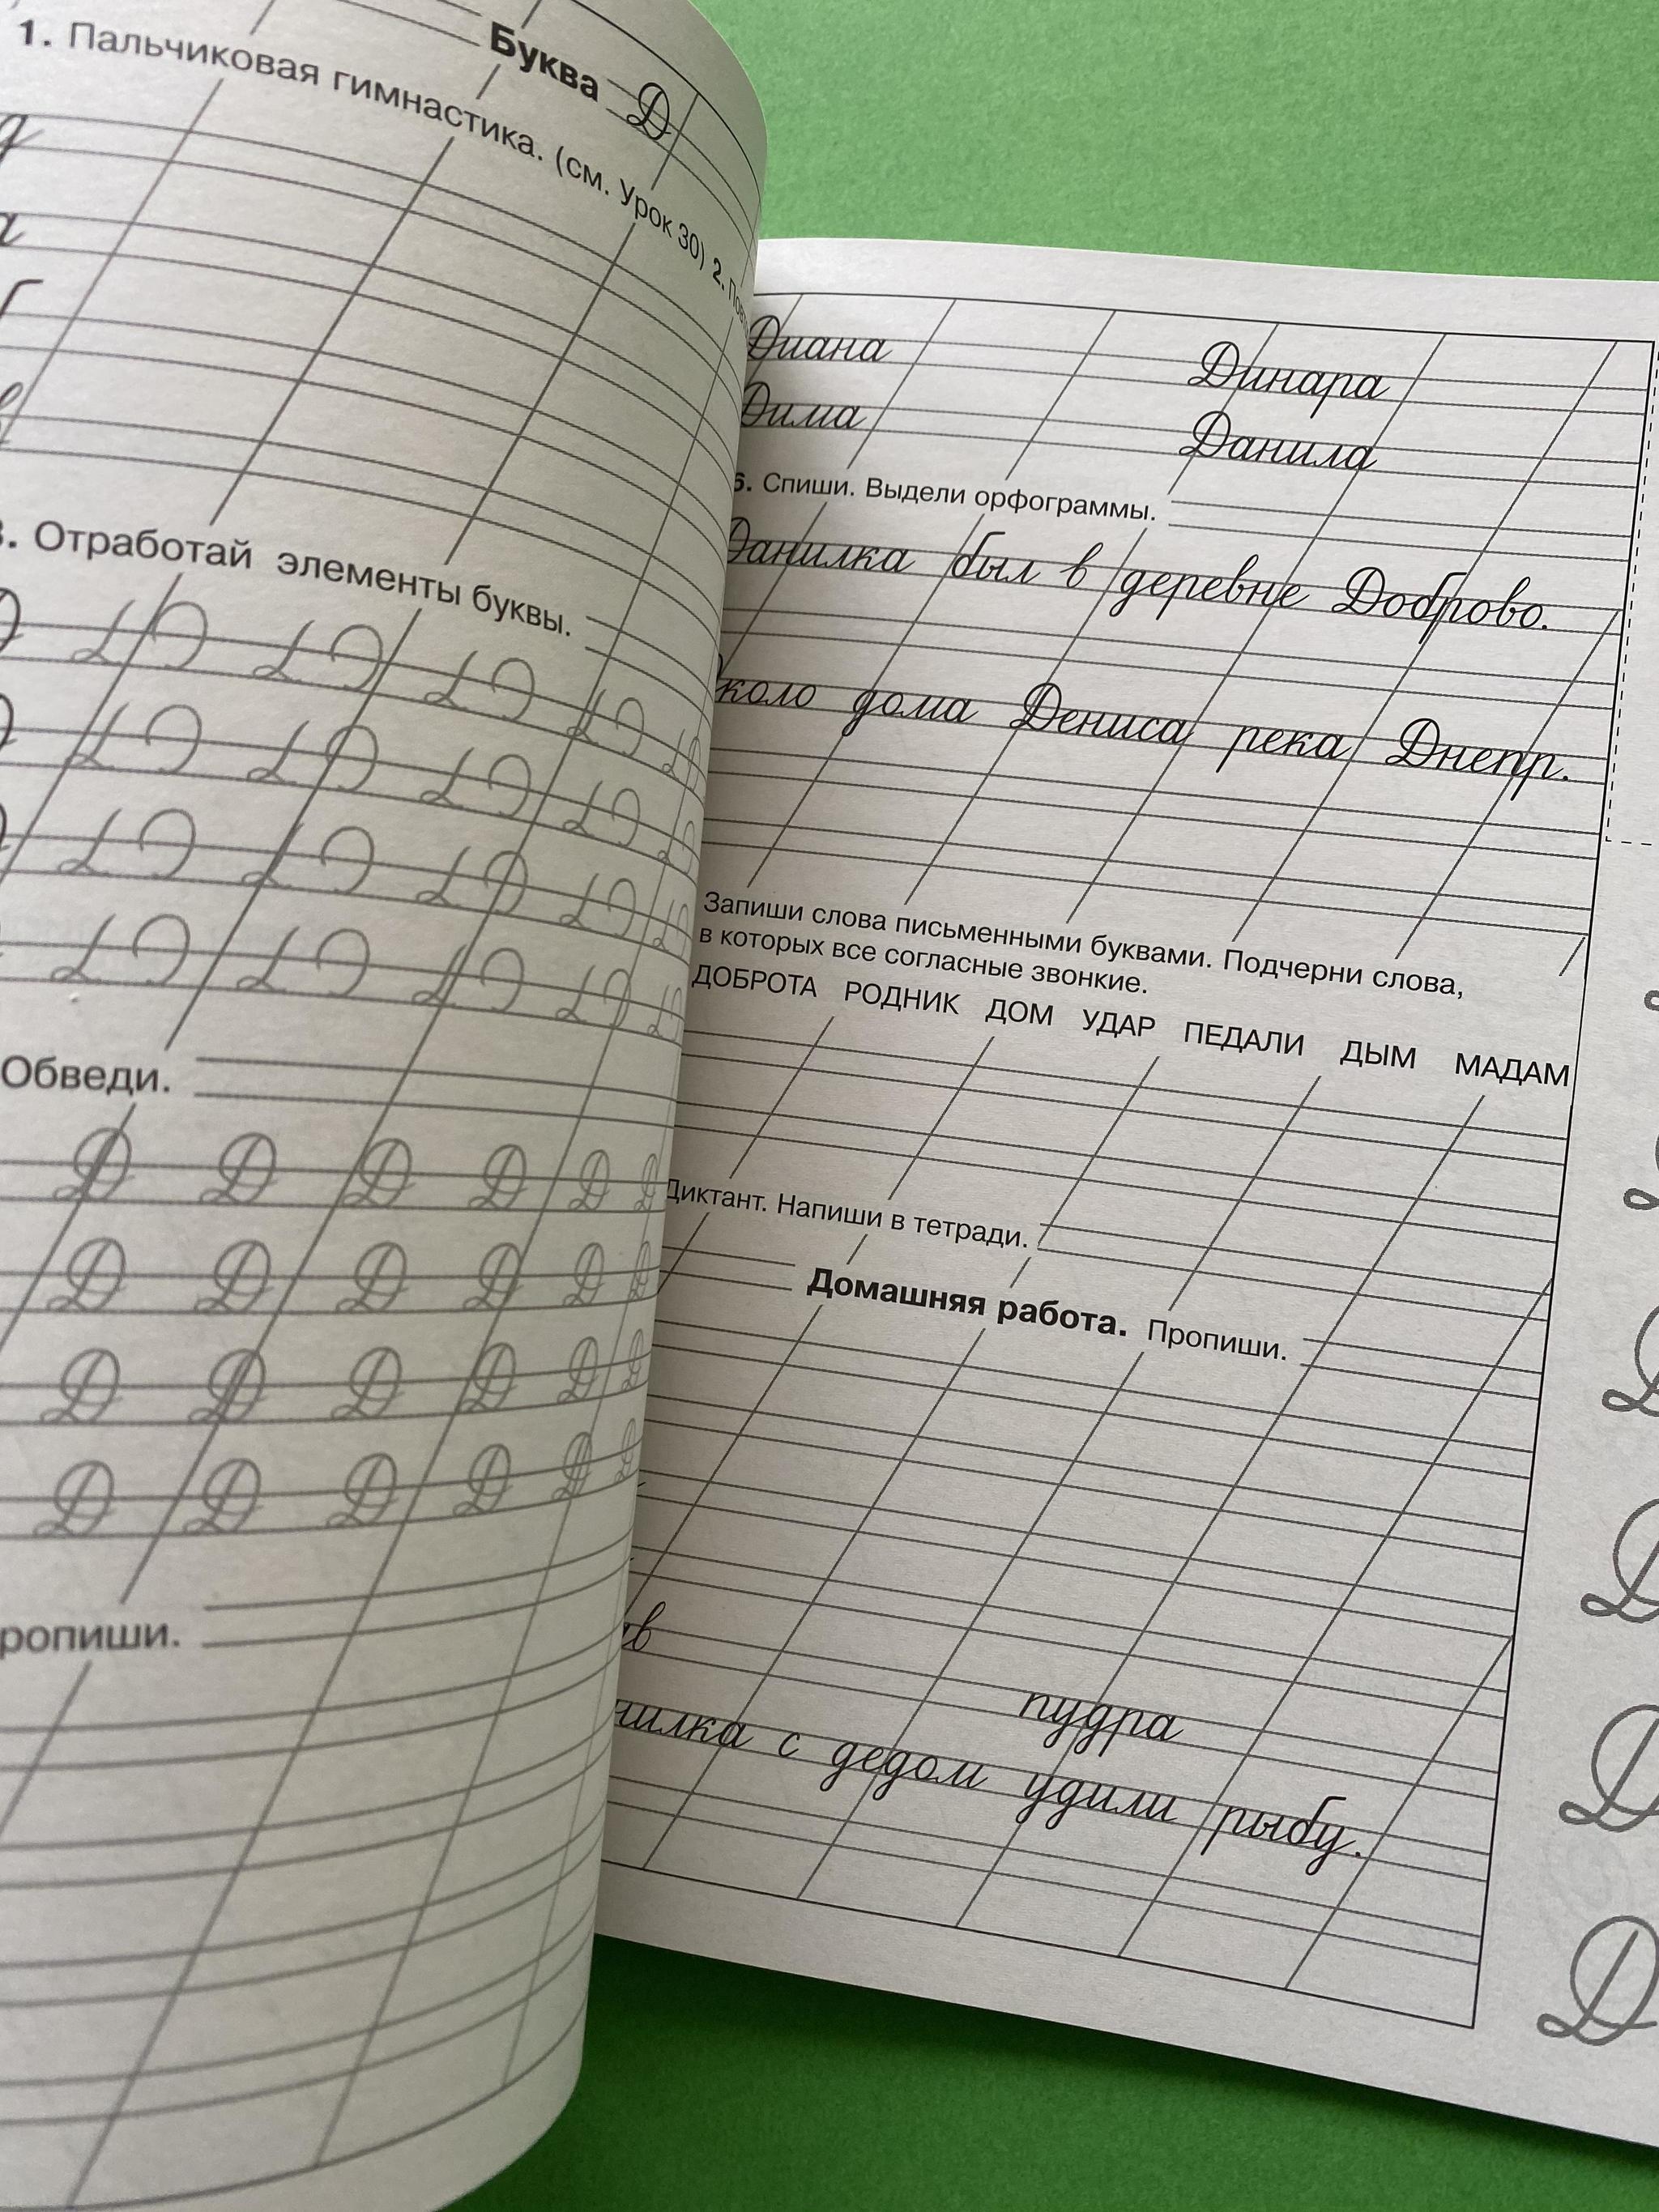 Буква Д
1. Пальчиковая гимнастика. (см. Урок 30) 2.
д
а
б
в
3. Отработай элементы буквы.
Обведи.
Д Д Д Д Д Д
Д Д Д Д Д Д
Д Д Д Д Д Д
Д Д Д Д Д Д
Пропиши.
Диана Динара
Дима Данила
6. Спиши. Выдели орфограммы.
Данилка был в деревне Доброво.
Около дома Дениса река Днепр.
Запиши слова письменными буквами. Подчерни слова,
в которых все согласные звонкие.
ДОБРОТА РОДНИК ДОМ УДАР ПЕДАЛИ ДЫМ МАДАМ
Диктант. Напиши в тетради.
Домашняя работа. Пропиши.
пудра
с дедом удили рыбу.
Д
Д
Д
Д